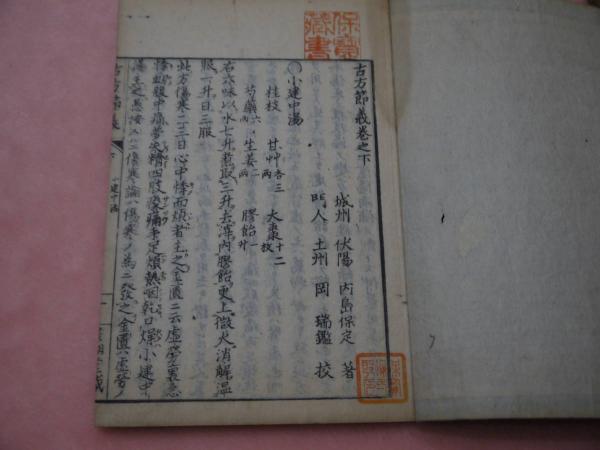 古方節義卷之下
城州 伏陽 内島保定 著
門人 土州 岡 瑞鑑 校
○小建中湯
桂枝 甘艸各三兩 大棗十二枚
芍藥六兩 生姜二兩 膠飴一升
右六味以水七升煮取三升去滓内膠飴更上微火消解温
服一升日三服
此方傷寒二三日心中悸而煩者主之金匱ニ云虚勞裏急
悸衄腹中痛夢失精四肢痠疼手足煩熱咽乾口燥小建中
湯主之愚按スルニ傷寒論ハ傷寒ノ為ニ
古方節義
小建中湯
保
藏書